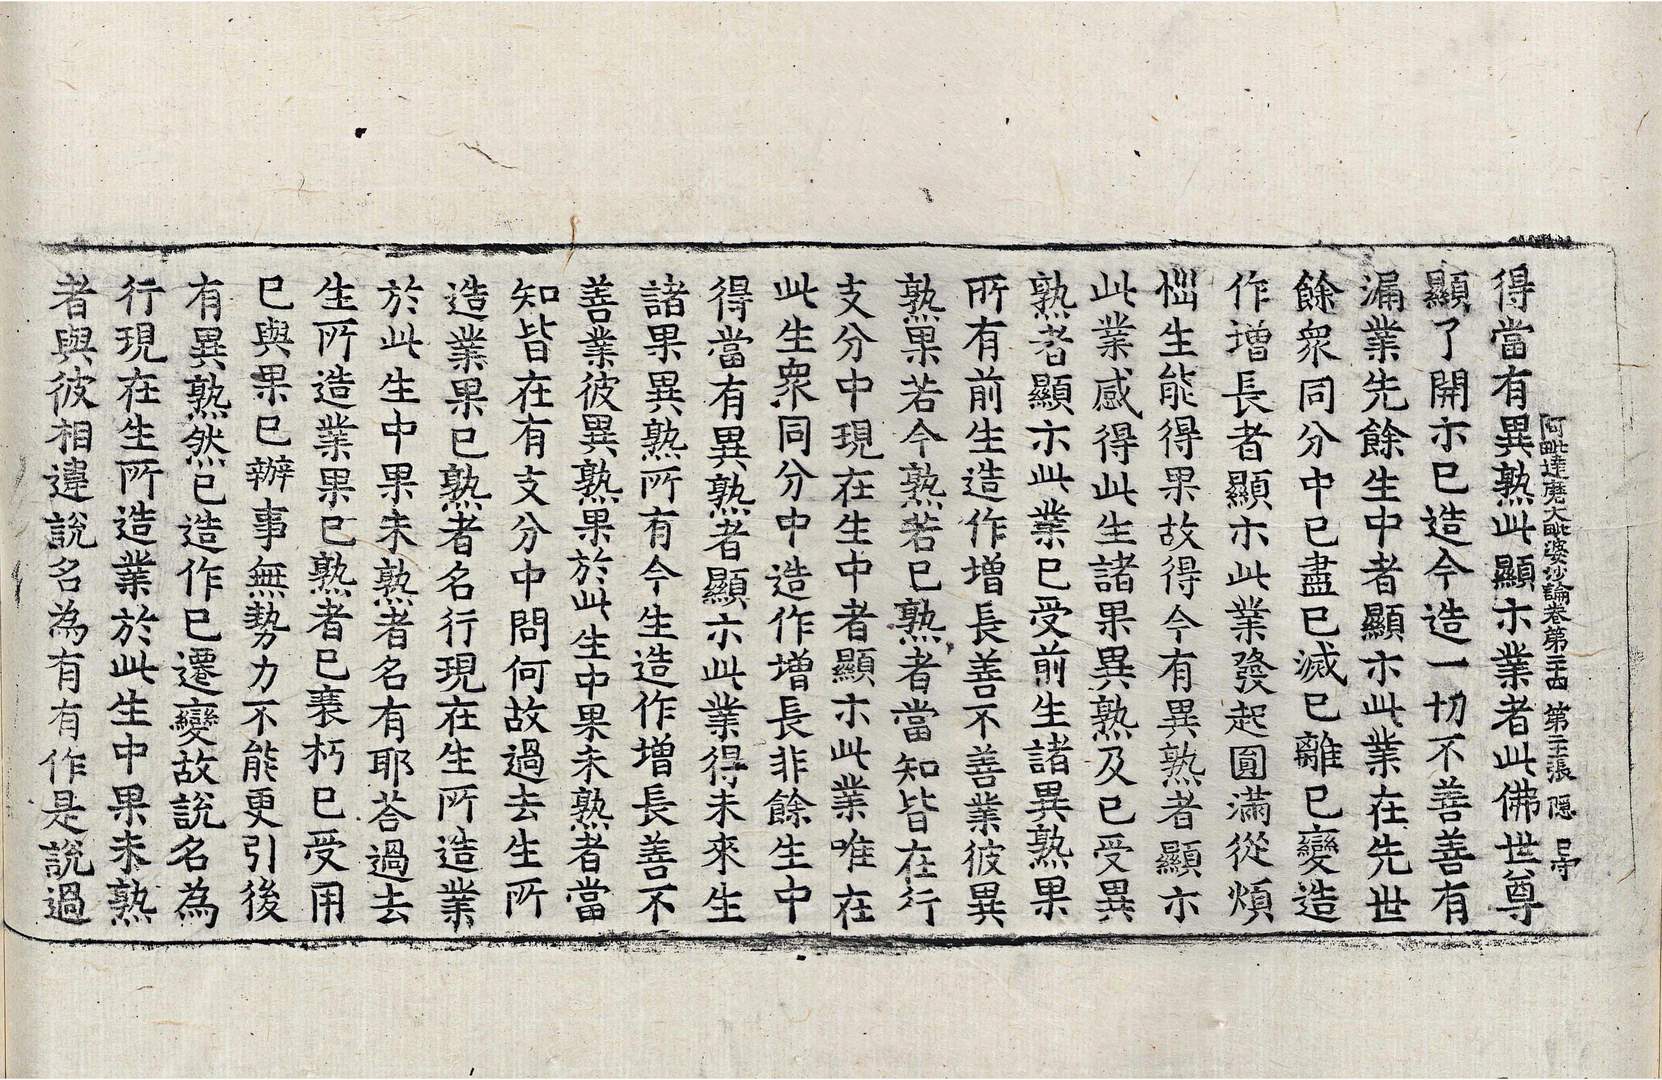 阿毗達磨大毗婆沙論卷第二十四 第 張 隱
得當有異熟此顯示業者此佛世尊
顯了開示已造今造一切不善善有
漏業先餘生中者顯示此業在先世
餘衆同分中已盡已滅已離已變造
作增長者顯示此業發起圓滿從煩
惱生能得果故得今有異熟者顯示
此業感得此生諸果異熟及已受異
熟者顯示此業已受前生諸異熟果
所有前生造作增長善不善業彼異
熟果若今熟若已熟者當知皆在行
支分中現在生中者顯示此業唯在
此生衆同分中造作增長非餘生中
得當有異熟者顯示此業得未來生
諸果異熟所有今生造作增長善不
善業彼異熟果於此生中果未熟者當
知皆在有支分中問何故過去生所
造業果已熟者名行現在生所造業
於此生中果未熟者名有耶荅過去
生所造業果已熟者已衰朽已受用
已與果已辦事無勢力不能更引後
有異熟然已造作已遷變故說名為
行現在生所造業於此生中果未熟
者與彼相違說名為有有作是說過